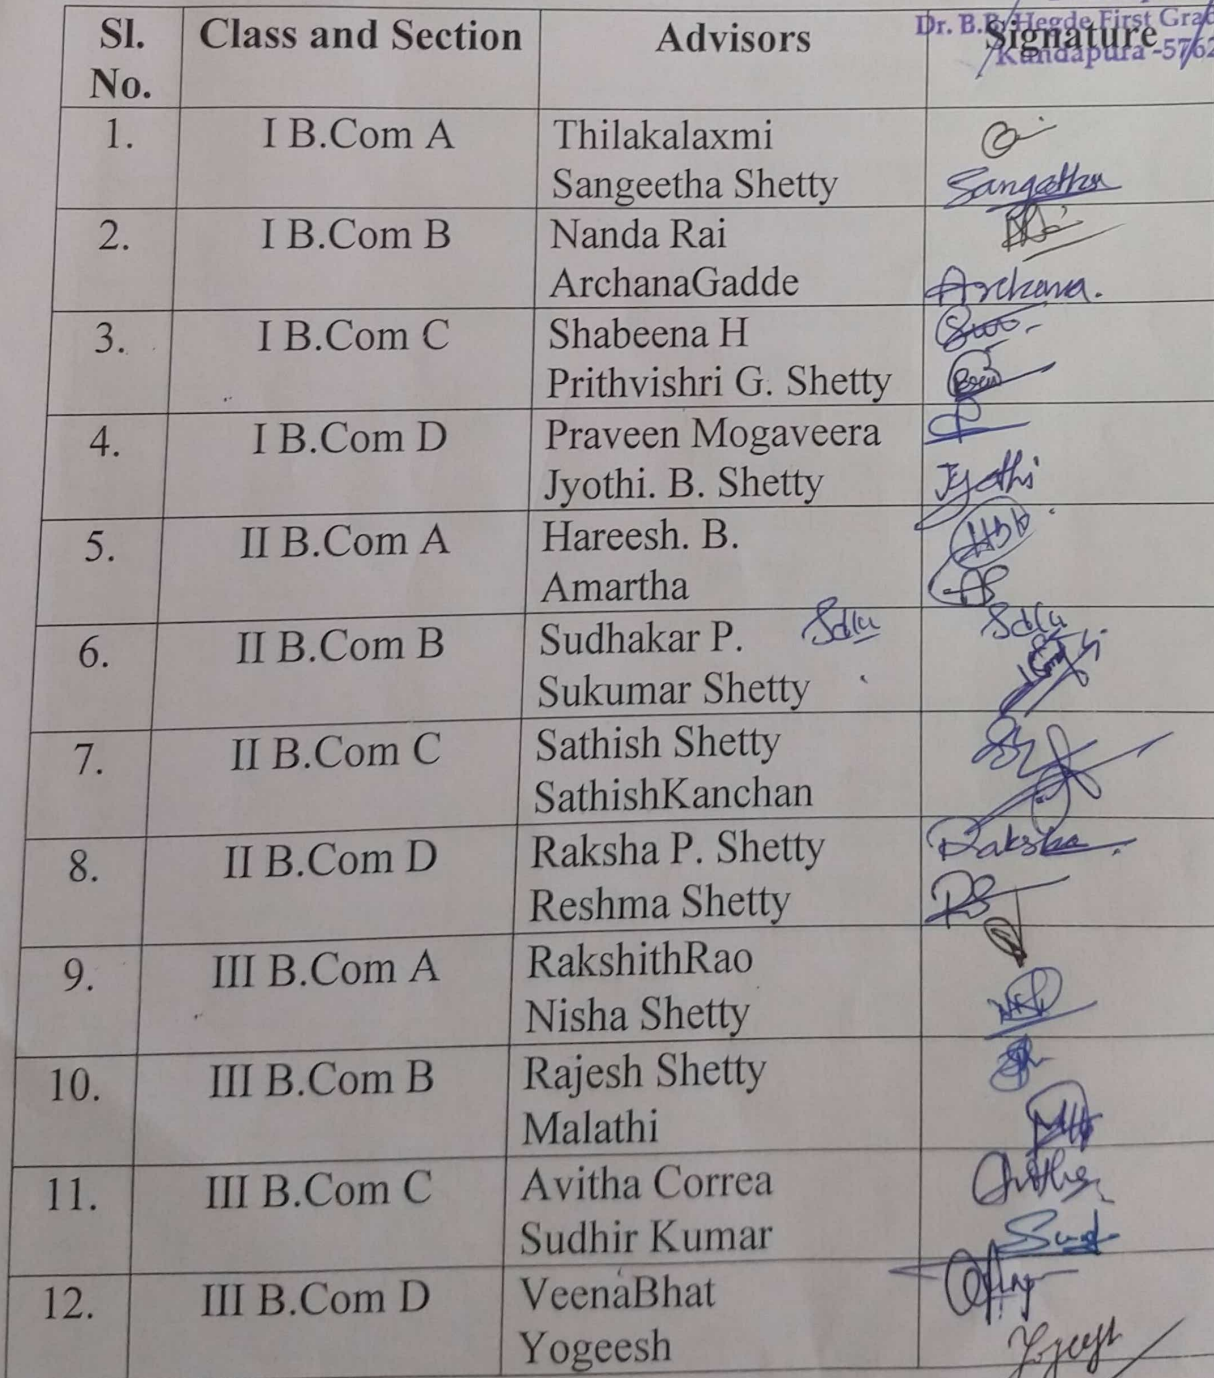 Dr. B.B. Hegde First Gra
Kundapura -5762
Sl. No. Class and Section Advisors Signature
1. I B.Com A Thilakalaxmi
Sangeetha Shetty Sangeetha
2. I B.Com B Nanda Rai
ArchanaGadde Archana.
3. I B.Com C Shabeena H
Prithvishri G. Shetty
4. I B.Com D Praveen Mogaveera
Jyothi. B. Shetty Jyothi
5. II B.Com A Hareesh. B.
Amartha
6. II B.Com B Sudhakar P.
Sukumar Shetty
7. II B.Com C Sathish Shetty
SathishKanchan
8. II B.Com D Raksha P. Shetty Raksha
Reshma Shetty RS
9. III B.Com A RakshithRao
Nisha Shetty
10. III B.Com B Rajesh Shetty
Malathi
11. III B.Com C Avitha Correa
Sudhir Kumar
12. III B.Com D VeenaBhat
Yogeesh